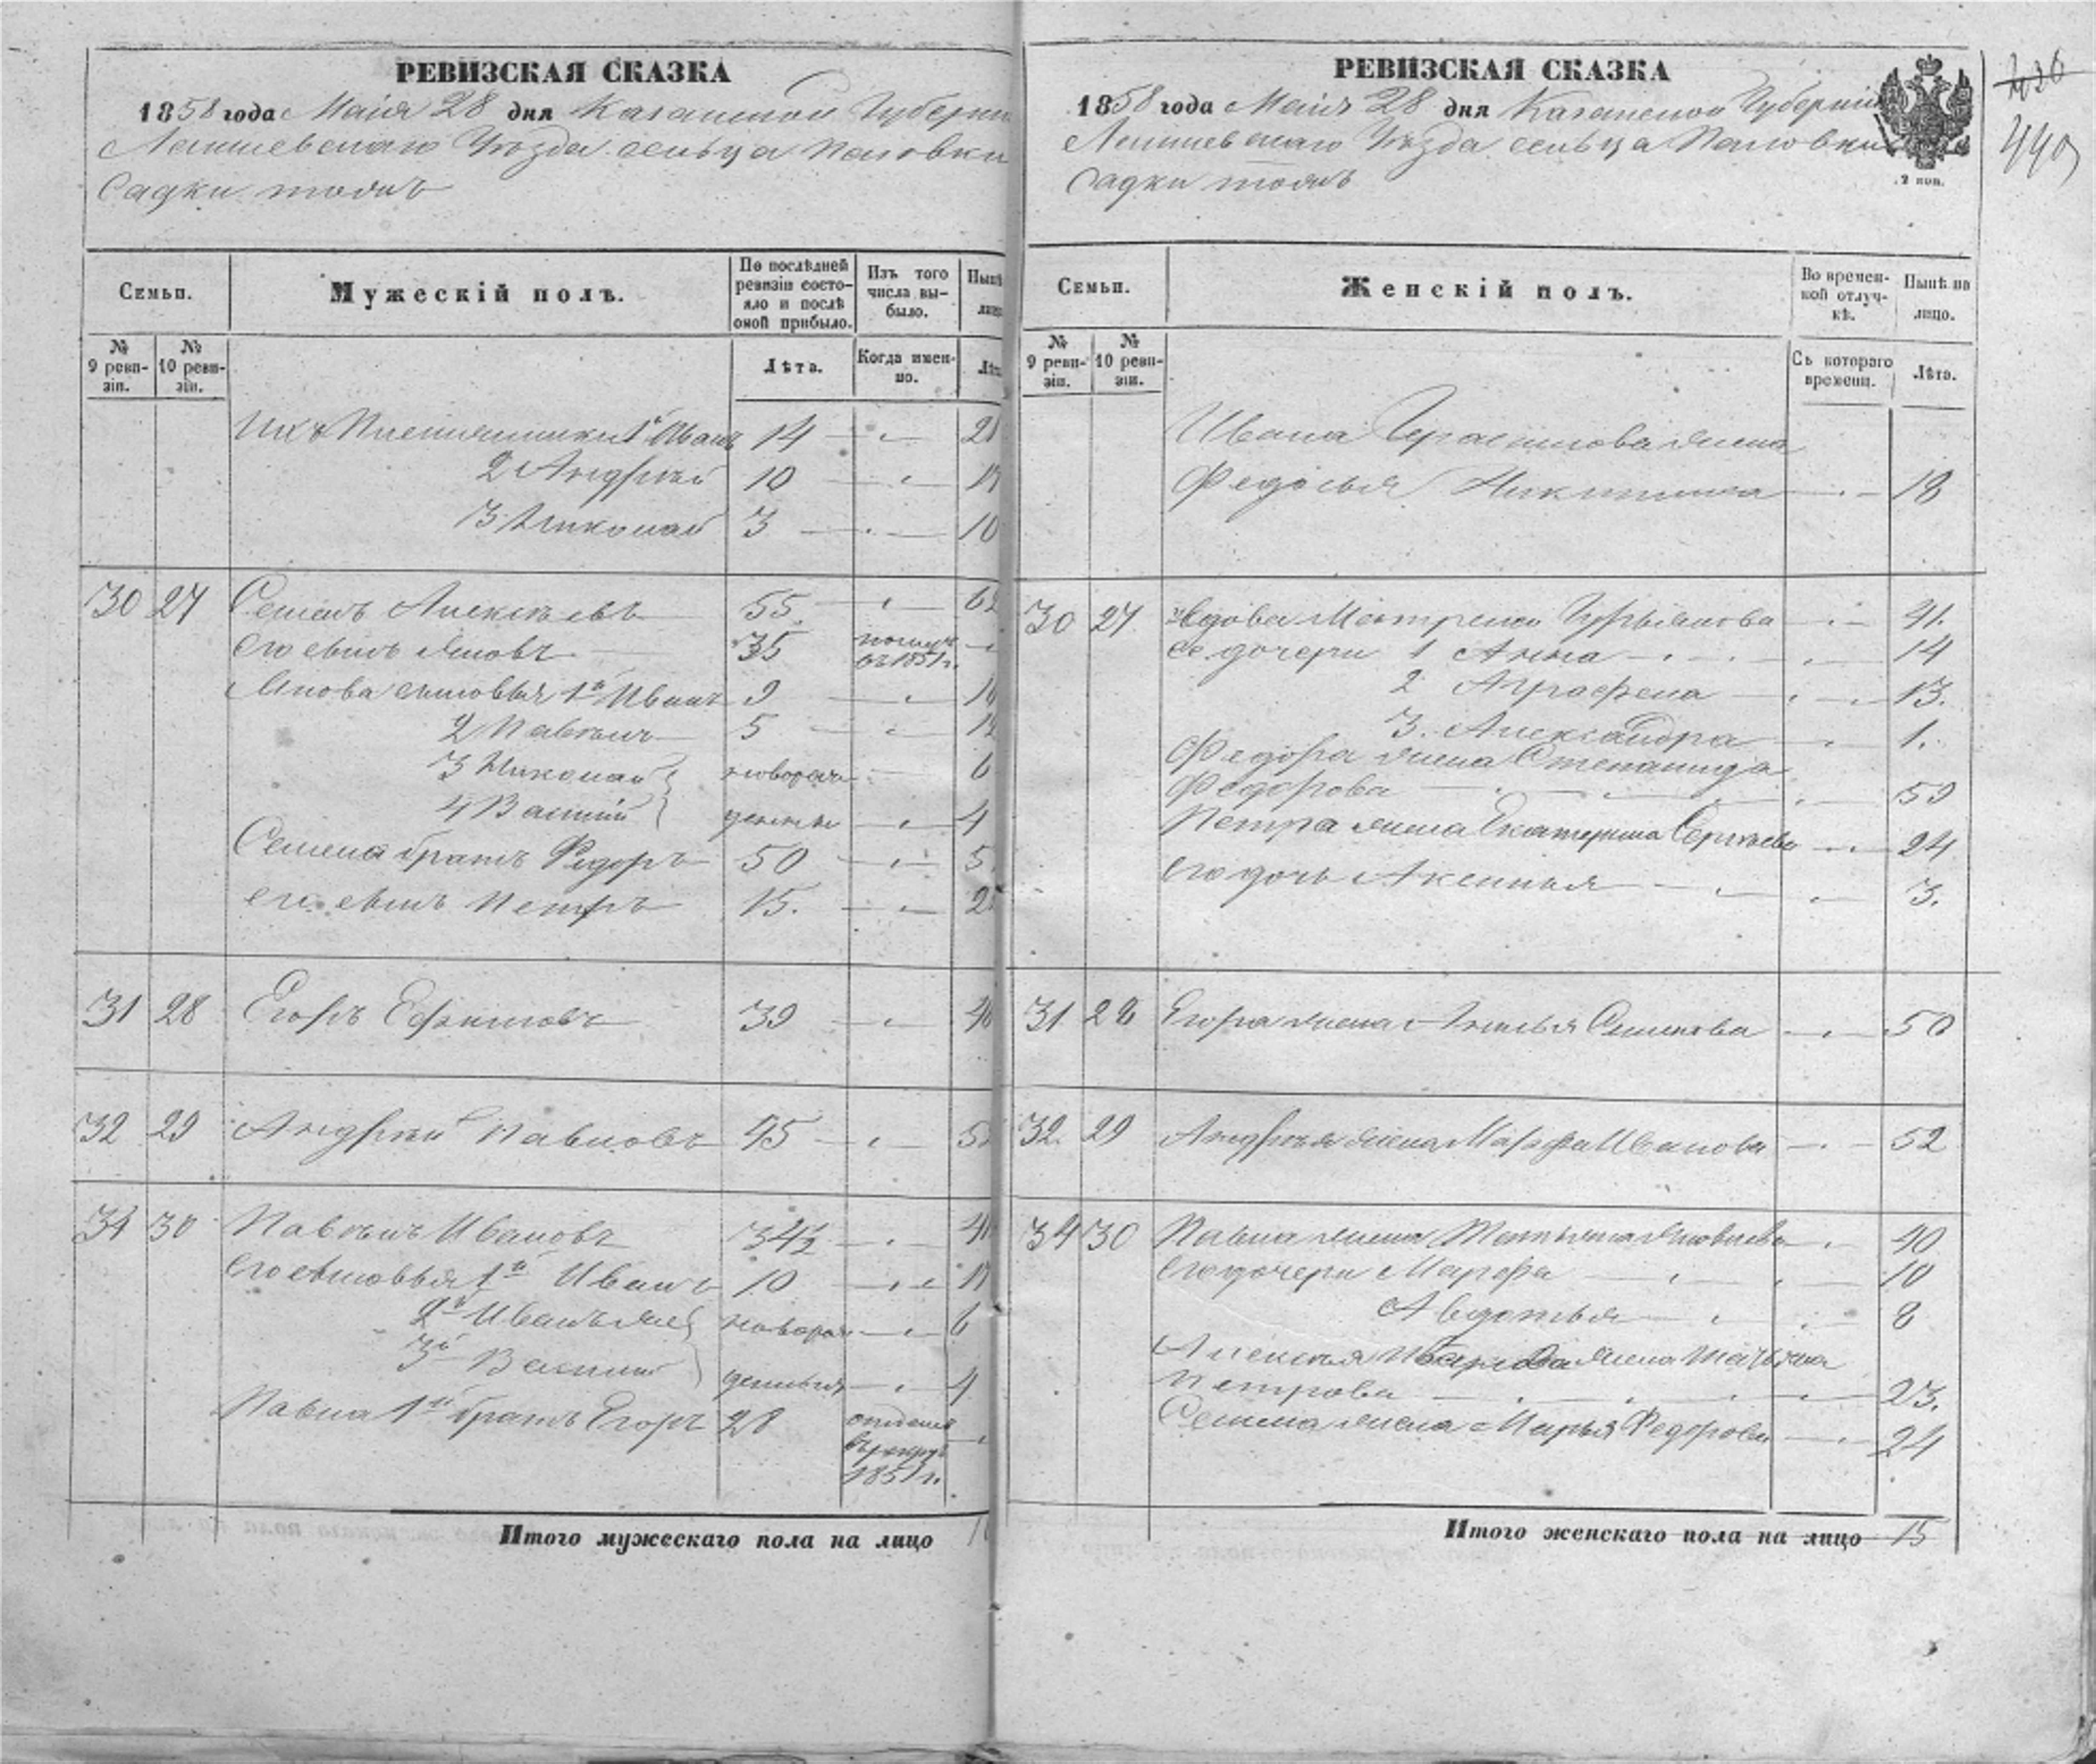 РЕВИЗСКАЯ СКАЗКА
1858 года Маія 28 дня Казанской Губерніи
Лаишевскаго Уѣзда сельца
Садки тожъ
Семьи.
Мужескій полъ.
По послѣдней ревизіи состояло и послѣ оной прибыло.
Изъ того числа выбыло.
Нынѣ
№ 9 ревизіи.
№ 10 ревизіи.
Лѣта.
Когда именно.
Ихъ Племянники 1й Иванъ 14
2 Андрей 10
3 Николай 3 10
30 27 Семенъ Алексѣевъ 55
его сынъ Яковъ 35 въ 1851 г.
Якова сыновья 1й Иванъ 9
2 Павелъ 5
3 Николай новорож 6
4 Василій денные 4
Семена братъ Федоръ 50
его сынъ Петръ 15.
31 28 Егоръ Ефимовъ 39
32 29 Андрей Павловъ 45
34 30 Павелъ Ивановъ 34½
его сыновья 1й Иванъ 10
2й Иванъ же новорож 6
3й Василій денныя 4
Павла 1й братъ Егоръ 28
1851 г.
Итого мужескаго пола на лицо
РЕВИЗСКАЯ СКАЗКА
1858 года Маія 28 дня Казанской Губерніи
Лаишевскаго Уѣзда сельца
Садки тожъ
2 коп.
440
Семьи.
Женскій полъ.
Во временной отлучкѣ.
Нынѣ на лицо.
№ 9 ревизіи.
№ 10 ревизіи.
Съ котораго времени.
Лѣта.
Ивана Герасимова жена
Федосья Никитина 18
30 27 Вдова Матрена Гурьянова 41.
Ее дочери 1 Анна 14
2 Аграфена 13.
3. Александра 1.
Федора жена Степанида
Федорова 59
Петра жена Екатерина Сергѣева 24
его дочь Аксинья 3.
31 28 Егора жена Семенова 50
32. 29 Андрея жена Марфа Иванова 52
34 30 Павла жена Татьяна Яковлева 40
его дочери Марфа 10
Авдотья 8
Алексѣя жена Татьяна
Петрова 23.
Семена жена Марья Федорова 24
Итого женскаго пола на лицо 15